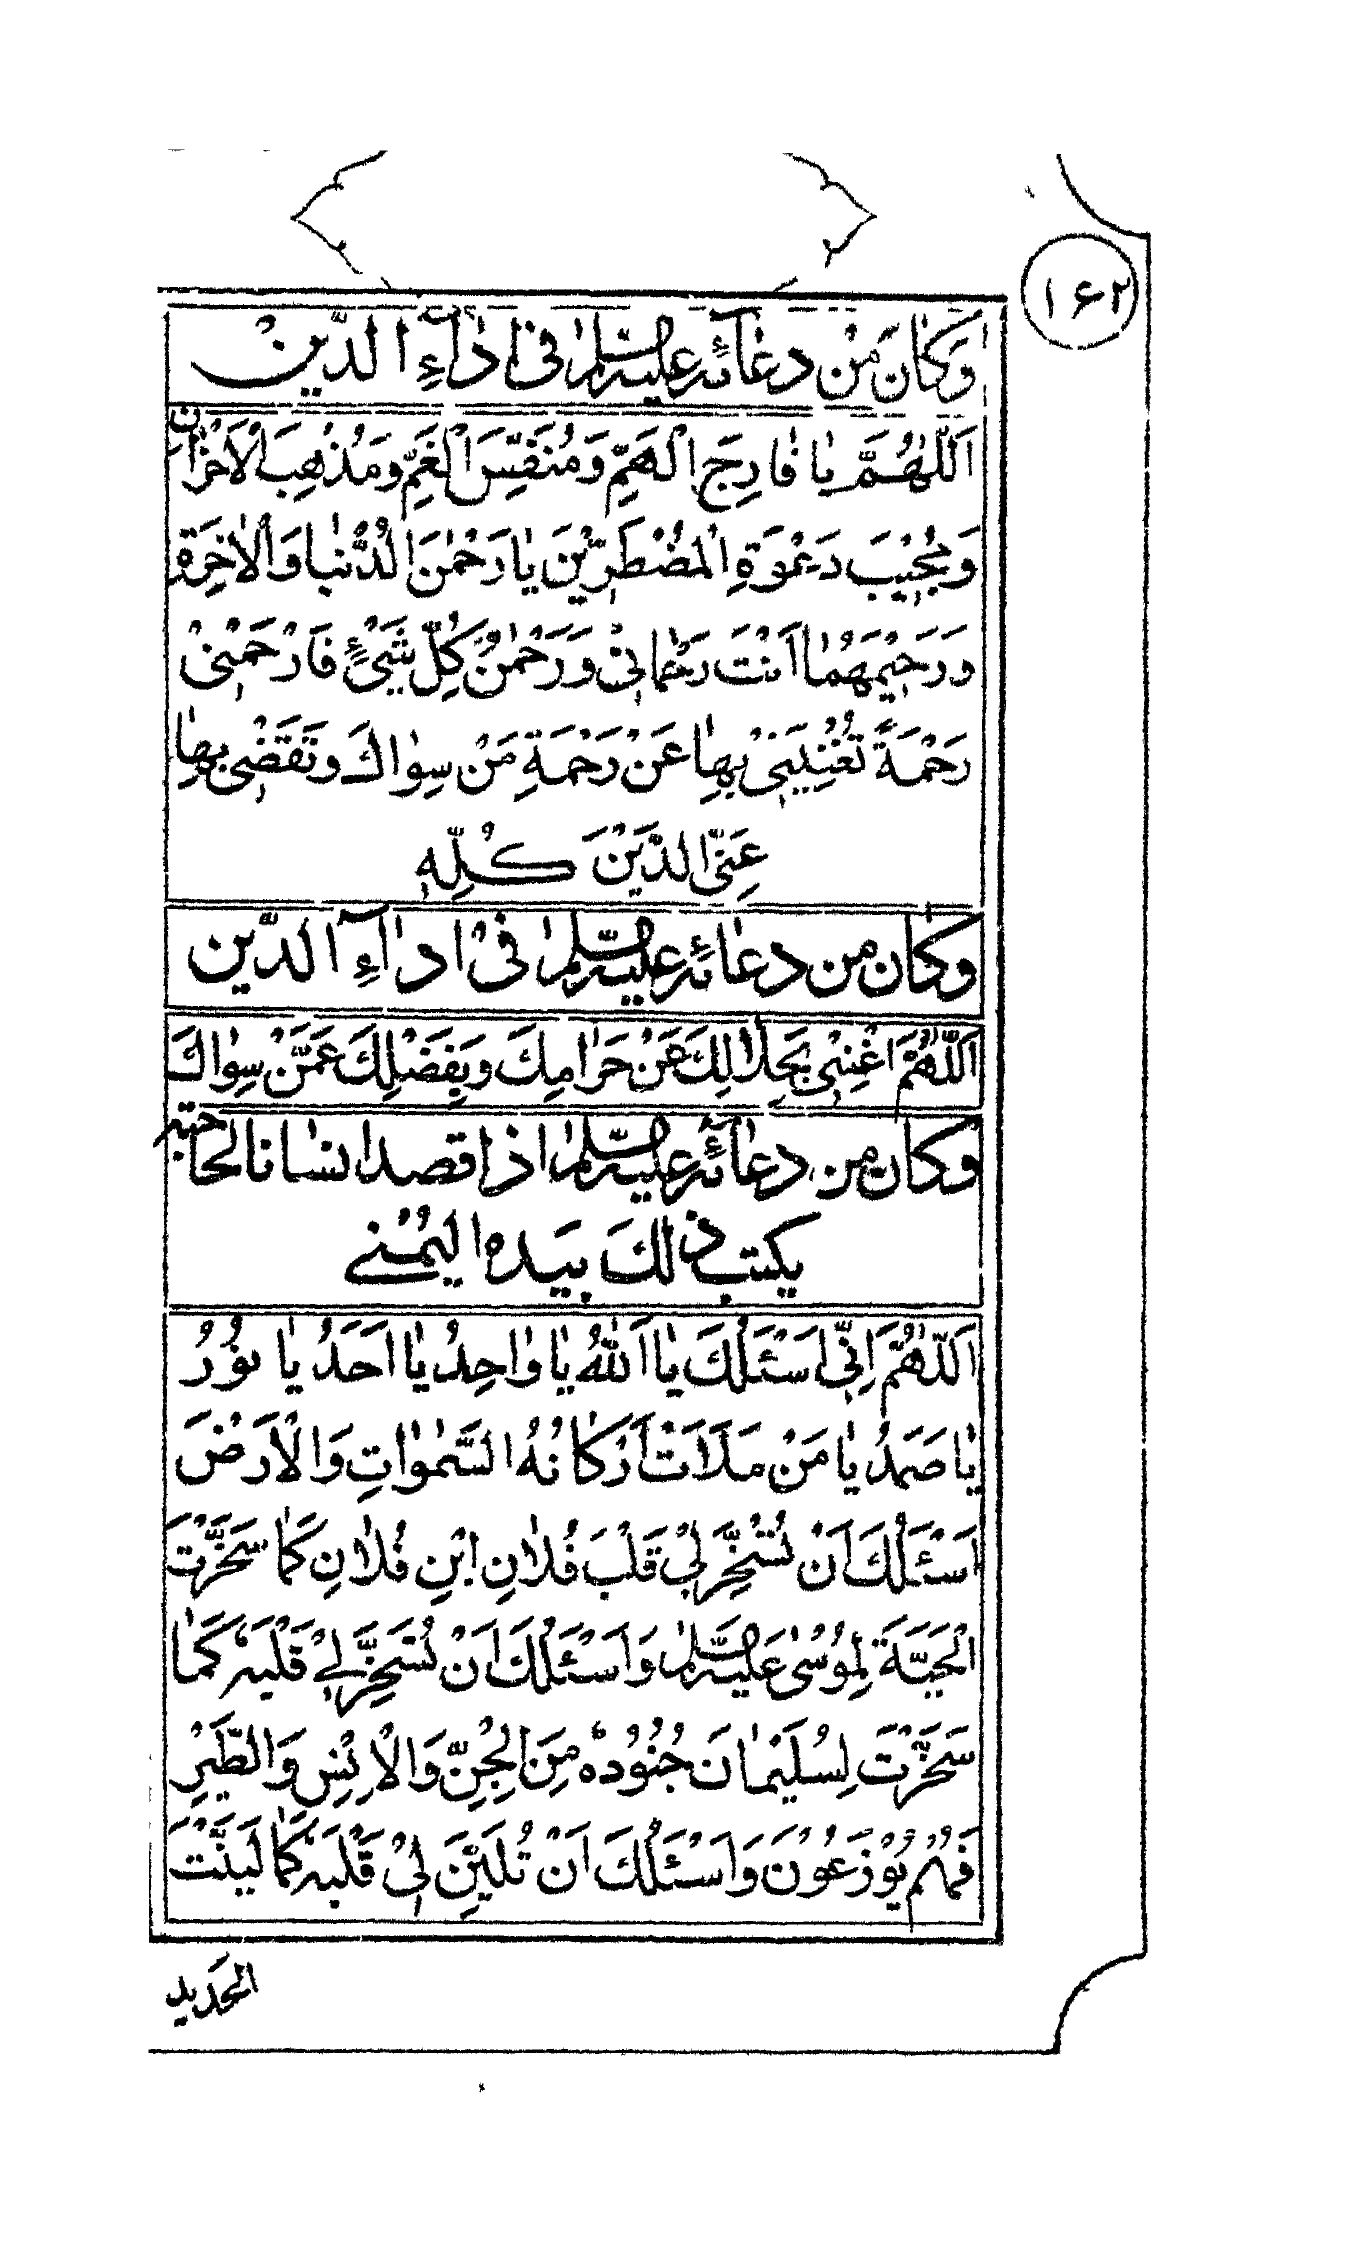 ١۶٢
وَكٰانَ مِنْ دُعٰائِهِ عَلَيْهِ السَّلٰمُ فى اَدٰاءِ الدَّيْنْ
اَللّٰهُمَّ يٰا فٰارِجَ الْهَمِّ وَمُنَفِّسَ الْغَمِّ وَمُذْهِبَ الْاَحْزٰانِ
وَمُجْيبَ دَعْوَةِ الْمُضْطَرّينَ يٰا رَحْمٰنَ الدُّنْيٰا وَالْاٰخِرَةِ
وَرَحيمَهُمٰا اَنْتَ رَحْمٰانى وَرَحْمٰنُ كُلِّ شَىْءٍ فَارْحَمْنى
رَحْمَةً تُغْنِيَنى بِهٰا عَنْ رَحْمَةِ مَنْ سِوٰاكَ وَتَقْضى بِهٰا
عَنِّى الدَّيْنَ كُلَّهِ
وكان من دعٰائه عليه السّلٰم فى ادٰاءِ الدَّين
اَللّٰهُمَّ اَغْنِنى بِحَلٰالِكَ عَنْ حَرٰامِكَ وَبِفَضْلِكَ عَمَّنْ سِوٰاكَ
وكان من دعٰائه عليه السّلٰم اذا قصد انسٰانا لحاجته
يكتب ذلكَ بيَده اليُمْنى
اَللّٰهُمَّ اِنّى اَسْئَلُكَ يٰا اَللّٰهُ يٰا وٰاحِدُ يٰا اَحَدُ يٰا نُوْرُ
يٰا صَمَدُ يٰا مَنْ مَلَاَتْ اَرْكٰانُهُ السَّمٰوٰاتِ وَالْاَرْضَ
اَسْئَلُكَ اَنْ تُسَخِّرَ لى قَلْبَ فُلٰانِ ابْنِ فُلٰانٍ كَمٰا سَخَّرْتَ
الْحَيَّةَ لِمُوسٰى عَلَيْهِ السَّلٰمُ وَاَسْئَلُكَ اَنْ تُسَخِّرَ لى قَلْبَهُ كَمٰا
سَخَّرْتَ لِسُلَيْمٰانَ جُنُوْدَهُ مِنَ الْجِنِّ وَالْاِنْسِ وَالطَّيْرِ
فَهُمْ يُوْزَعُونَ وَاَسْئَلُكَ اَنْ تُلَيِّنَ لى قَلْبَهُ كَمٰا لَيَّنْتَ
الحَديد